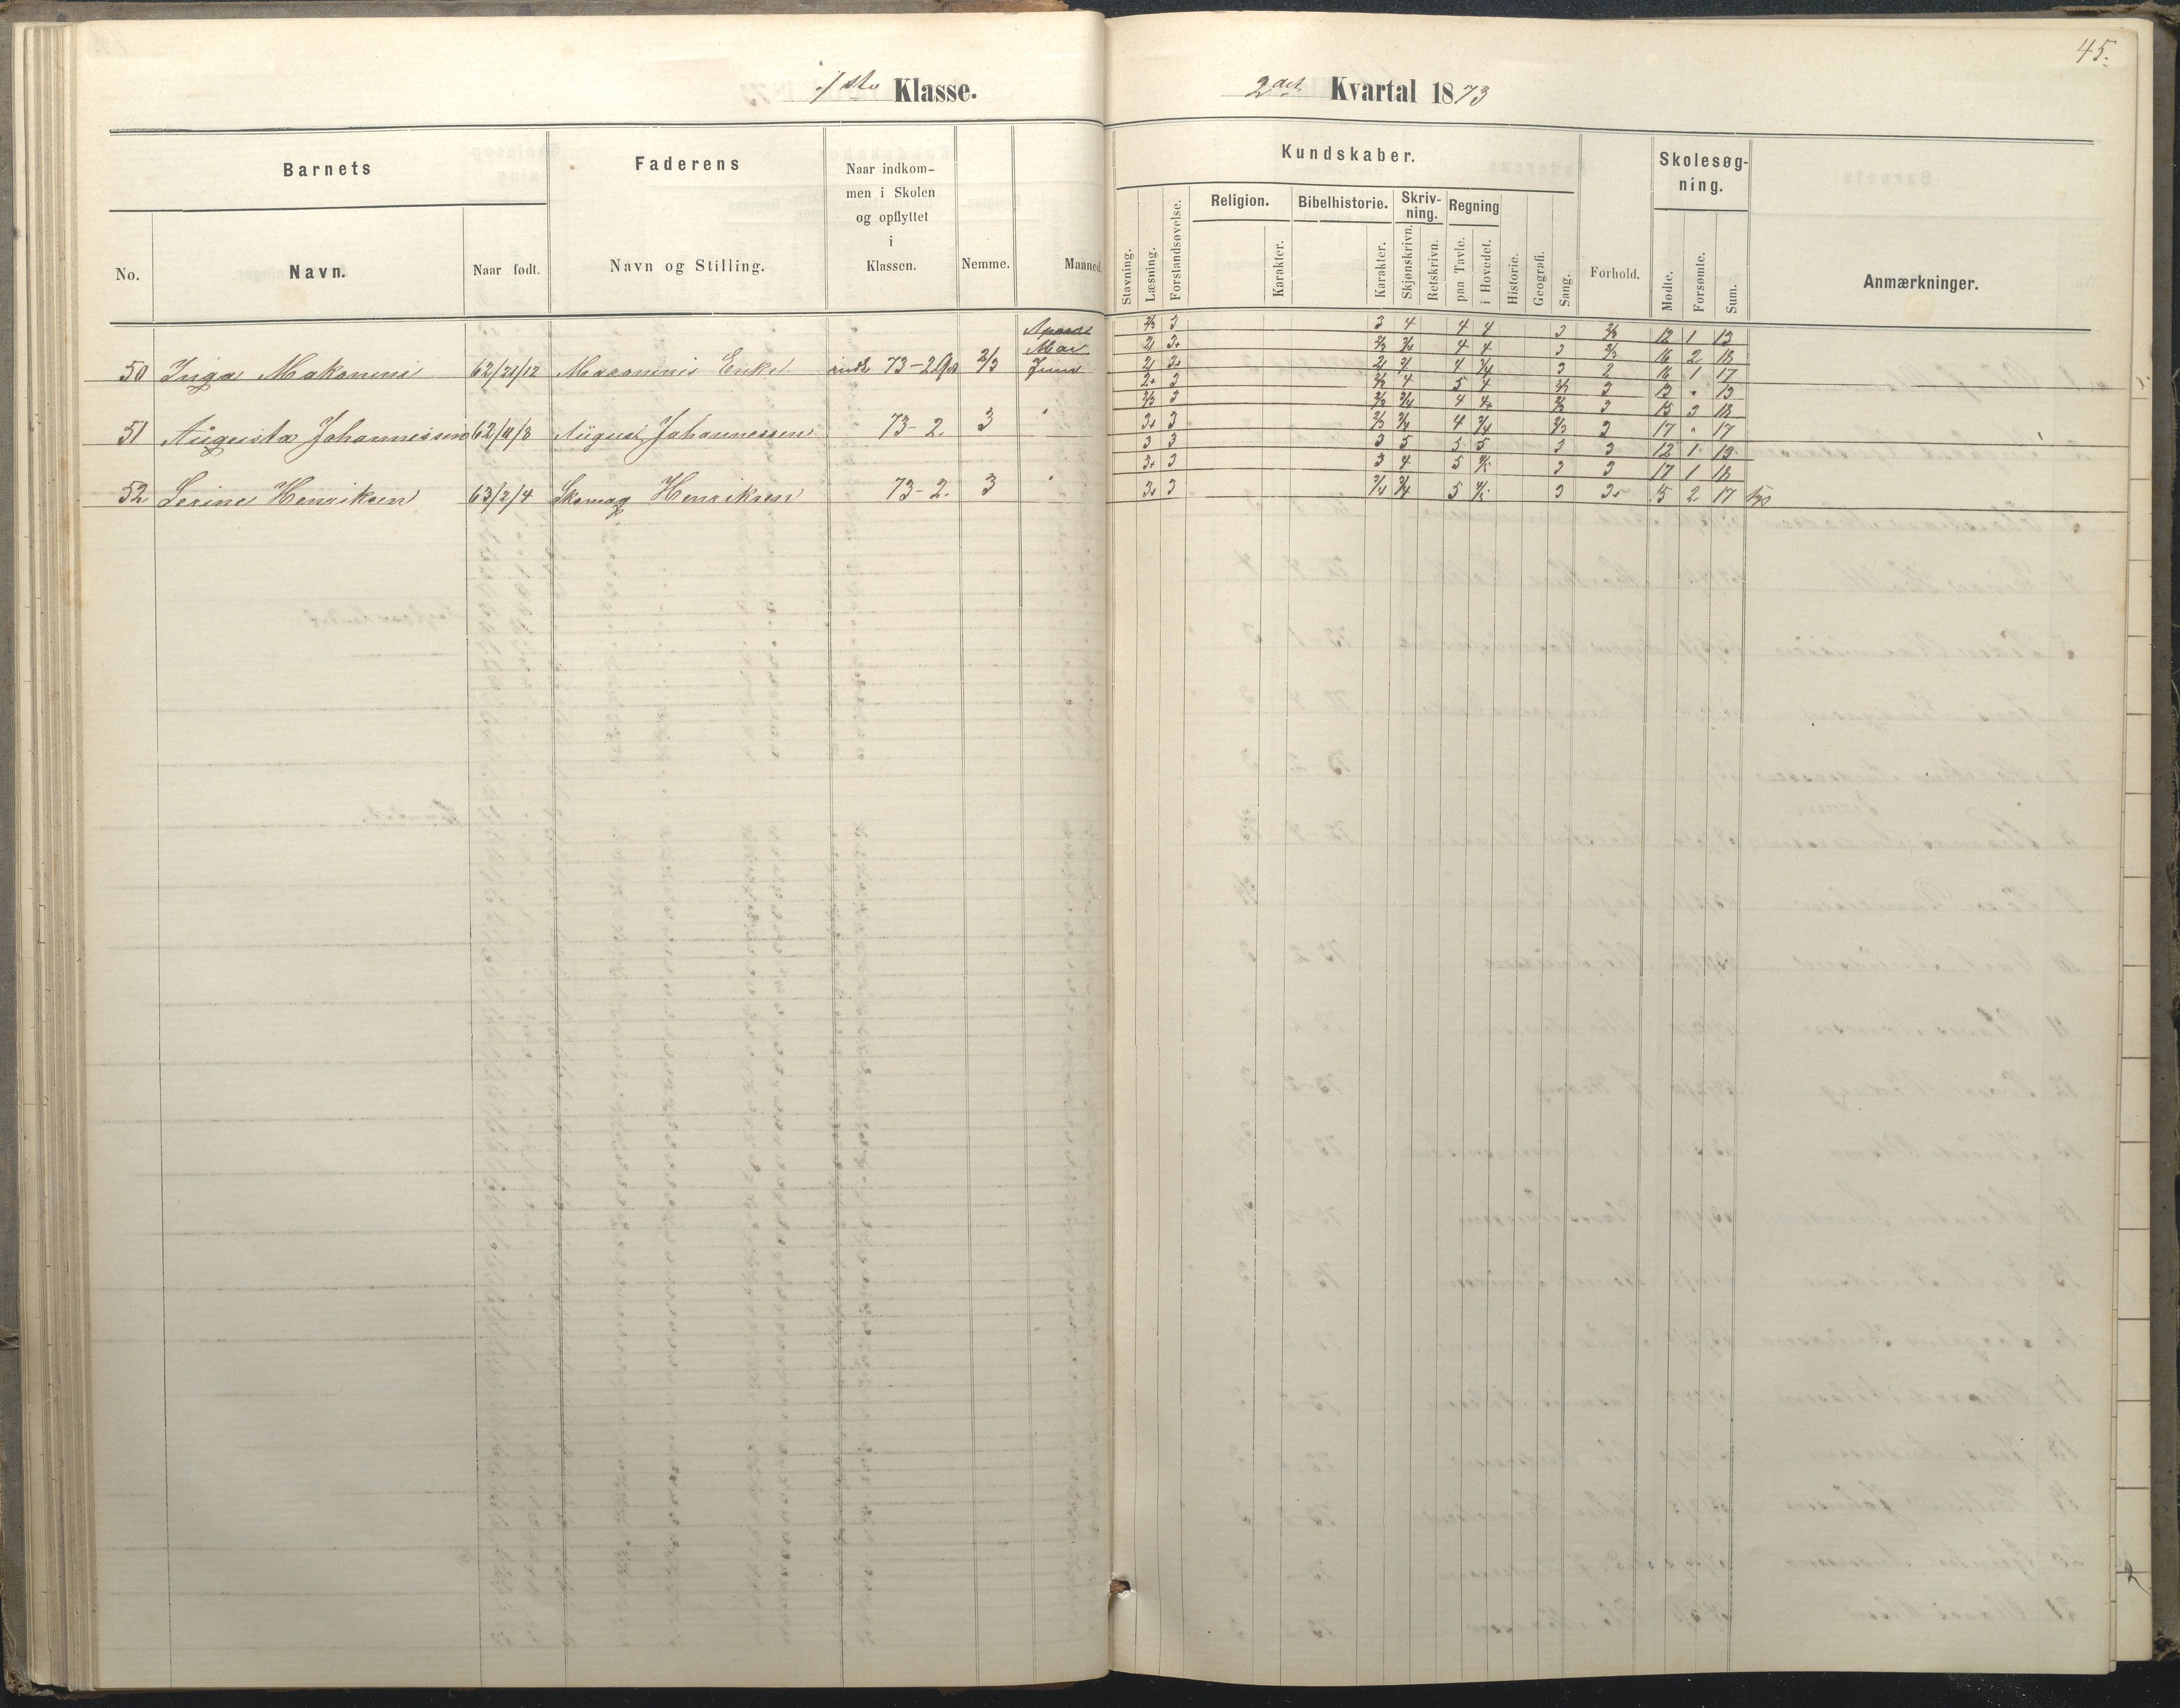 45.
1ste Klasse.
2det Kvartal 1873
Barnets
Faderens
Naar indkom-
men i Skolen
og opflyttet
i
Klassen.
No.
Navn.
Naar født.
Navn og Stilling.
Nemme.
Maaned
Kundskaber.
Stavning.
Læsning.
Forstandsøvelse.
Religion.
Karakter.
Bibelhistorie.
Karakter.
Skriv-
ning.
Skjønskrivn.
Retskrivn.
Regning
paa Tavle.
i Hovedet.
Historie.
Geografi.
Sang.
Forhold.
Skolesøg-
ning.
Mødte.
Forsømte.
Sum.
Anmærkninger.
50 Inga 62/21/12 Enke 73-2 2/3
Mai
Juni
51 Augusta Johannessen 62/4/8 August Johannessen 73-2. 3 "
52 Serine Henriksen 63/2/4 Skomag Henriksen 73-2. 3 "
2/3 3 3 4 4 4 3 2/3 12 1 13
4 4 3 2/3 16 2 18
4 3/4 3 2 16 1 17
2+ 3 2/3 4 5 4 2/3 3 13 " 13
2/3 3 2/3 3/4 4 4+ 2/3 3 15 3 18
3+ 3 2/3 3/4 4 3/4 2/3 3 17 " 17
3 3 3 5 5 5 3 3 12 1 13
3+ 3 3 4 5 4/5 3 3 17 1 18
3+ 3 3/4 3/4 5 4/5 3 3+ 15 2 17